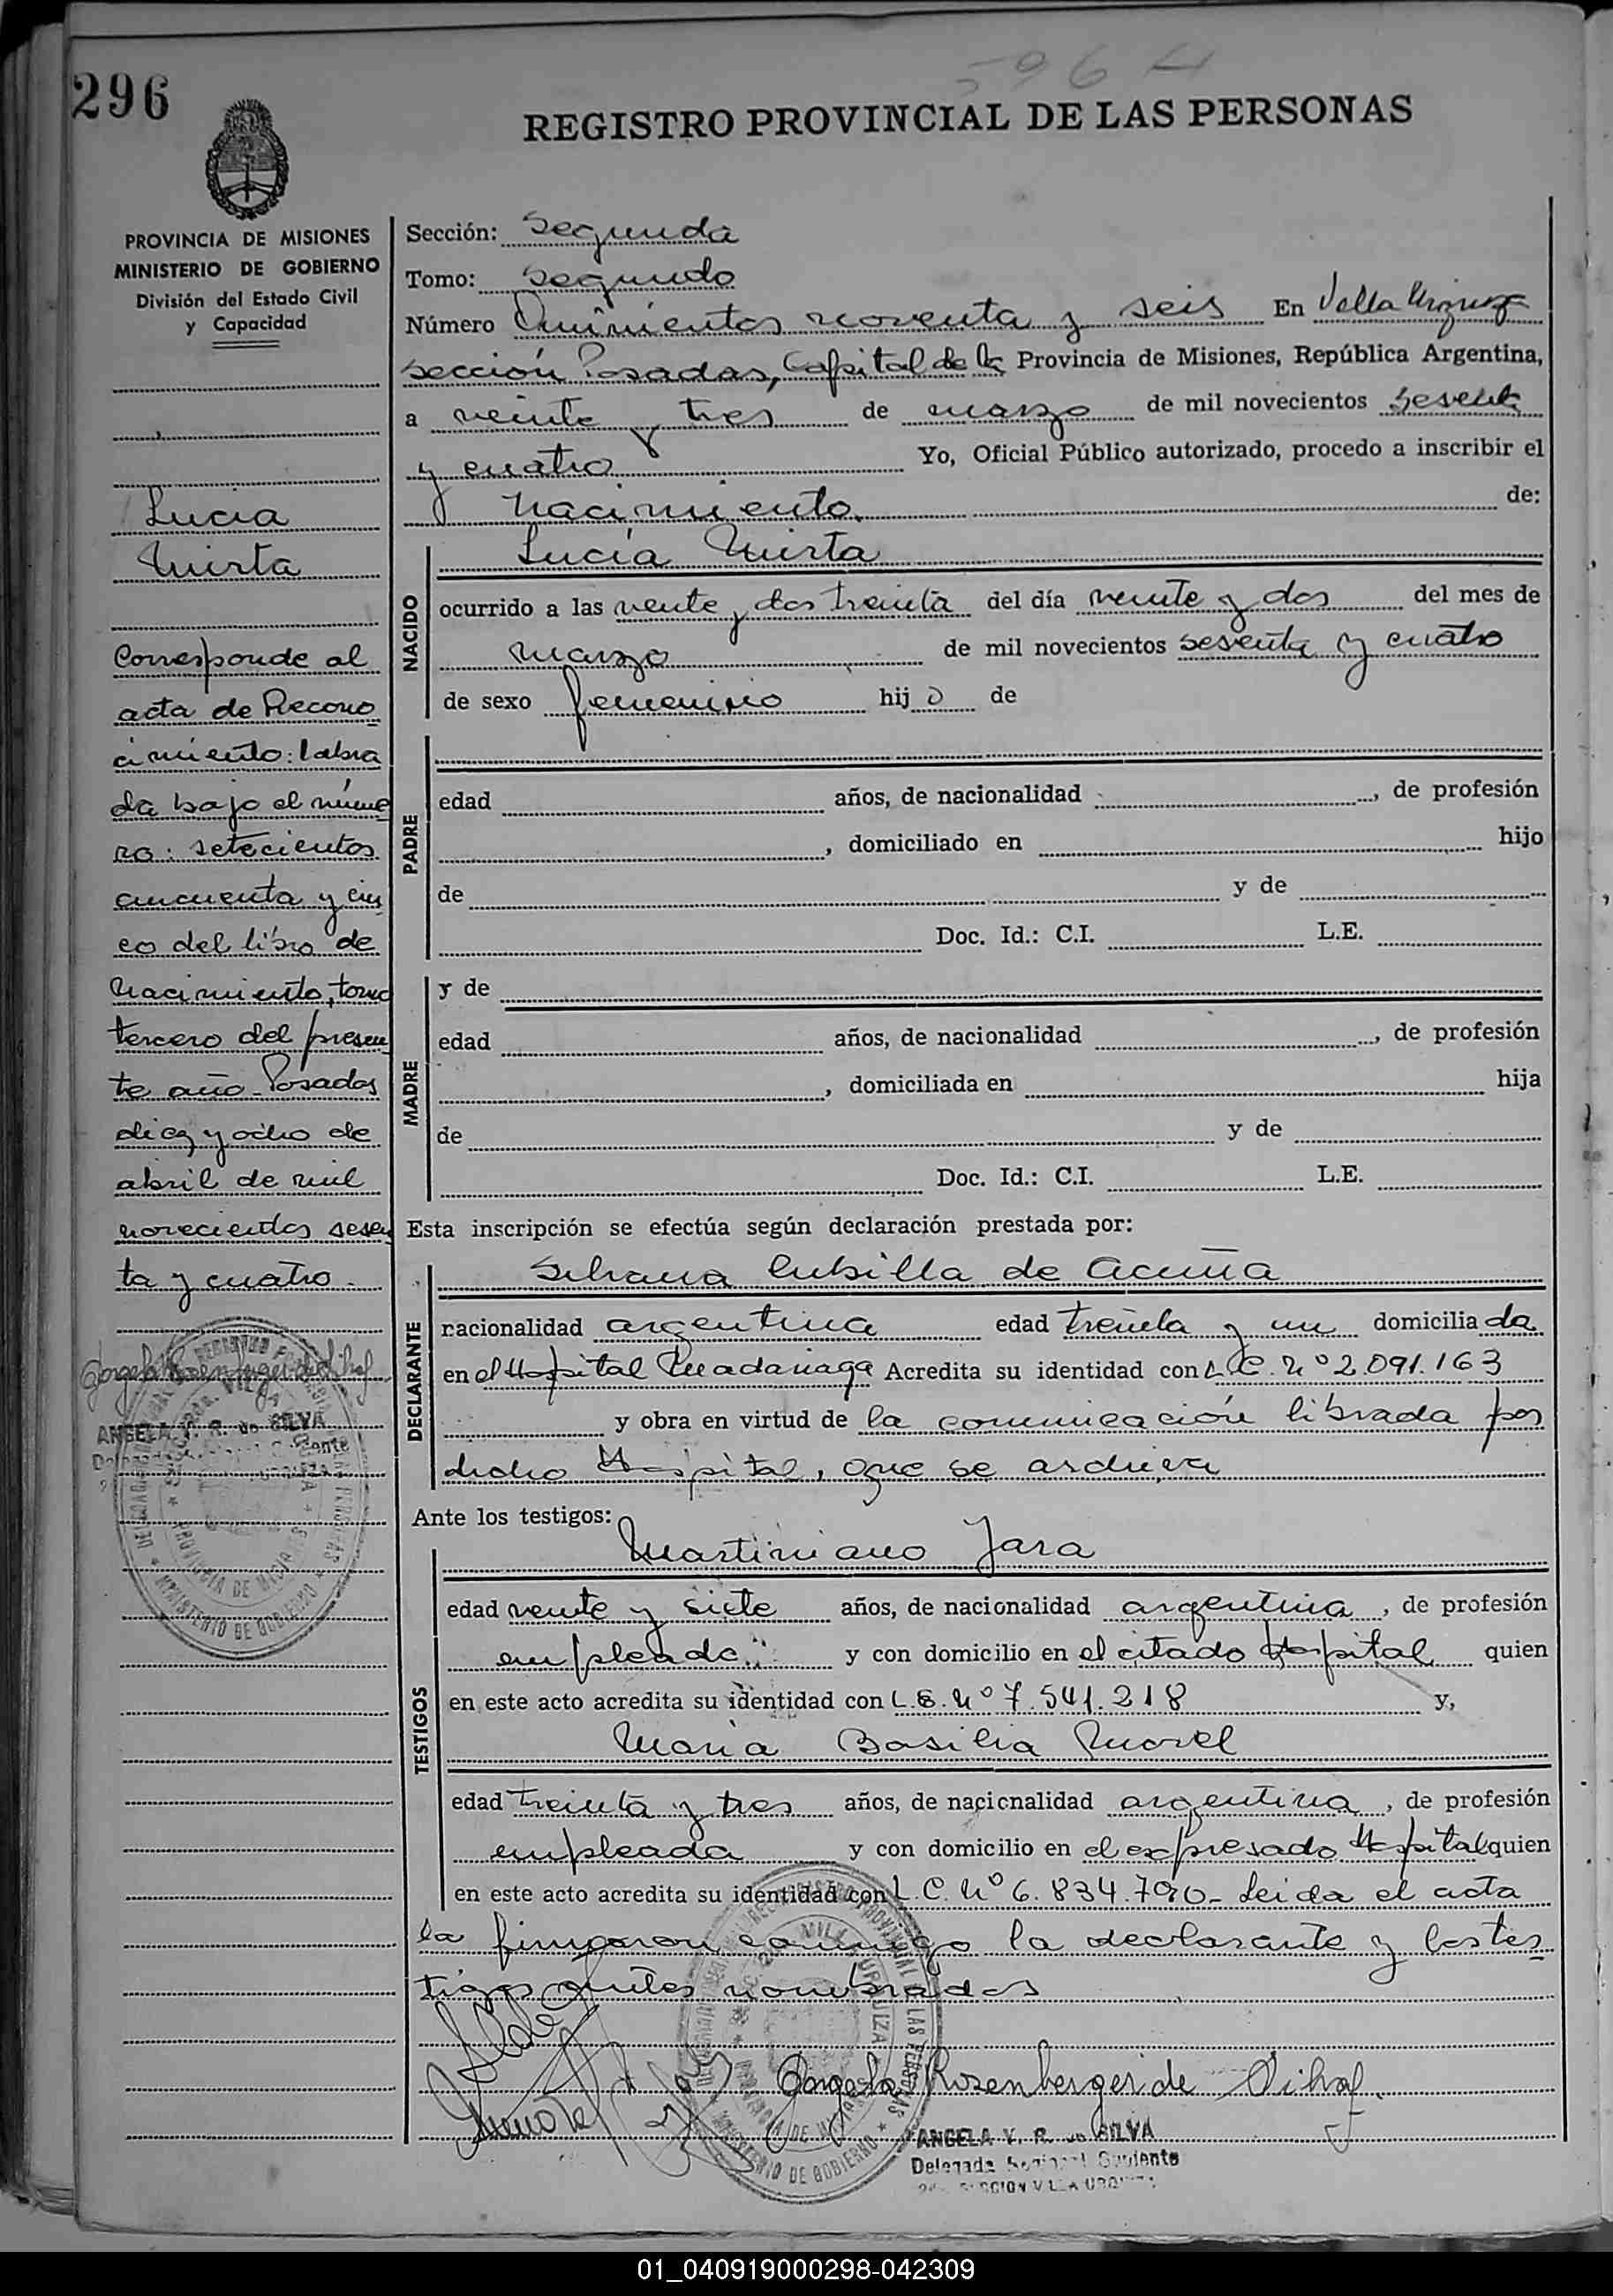 296
596
REGISTRO PROVINCIAL DE LAS PERSONAS
PROVINCIA DE MISIONES
MINISTERIO DE GOBIERNO
División del Estado Civil
y Capacidad
Lucia
Mirta
Corresponde al
acta de Recono
cimiento: labra
da bajo el núme
ro: setecientos
cincuenta y cin
co del libro de
Nacimiento, tomo
tercero del presen
te año. Posadas
diez y ocho de
abril de mil
novecientos sesen
ta y cuatro.
ANGELA Y. R. de SILVA
Sección: Segunda
Tomo: Segundo
Número Quinientos noventa y seis En Villa Urquiza
sección Posadas, Capital de la Provincia de Misiones, República Argentina,
a veinte y tres de marzo de mil novecientos sesenta
y cuatro Yo, Oficial Público autorizado, procedo a inscribir el
Nacimiento de:
NACIDO
Lucía Mirta
ocurrido a las veinte y dos treinta del día veinte y dos del mes de
marzo de mil novecientos sesenta y cuatro
de sexo femenino hij a de
PADRE
edad años, de nacionalidad , de profesión
, domiciliado en hijo
de y de
Doc. Id.: C.I. L.E.
MADRE
y de
edad años, de nacionalidad , de profesión
, domiciliada en hija
de y de
Doc. Id.: C.I. L.E.
Esta inscripción se efectúa según declaración prestada por:
DECLARANTE
Silvana Cubilla de Acuña
nacionalidad argentina edad treinta y un domicilia da
en el Hospital Madariaga Acredita su identidad con L.C. Nº 2.091.163
y obra en virtud de la comunicación librada por
dicho Hospital, que se archiva
Ante los testigos:
TESTIGOS
Martiniano Jara
edad veinte y siete años, de nacionalidad argentina, de profesión
empleado y con domicilio en el citado Hospital quien
en este acto acredita su identidad con L.E. Nº 7.541.218 y,
Maria Basilia Morel
edad treinta y tres años, de nacionalidad argentina, de profesión
empleada y con domicilio en el expresado Hospital quien
en este acto acredita su identidad con L.C. Nº 6.834.790- Leida el acta
la firmaron conmigo la declarante y los tes
tigos antes nombrados
Angela Rosenberger de Silva
ANGELA Y. R. de SILVA
Delegada Suplente
SECCION VILLA URQUIZA
01_040919000298-042309